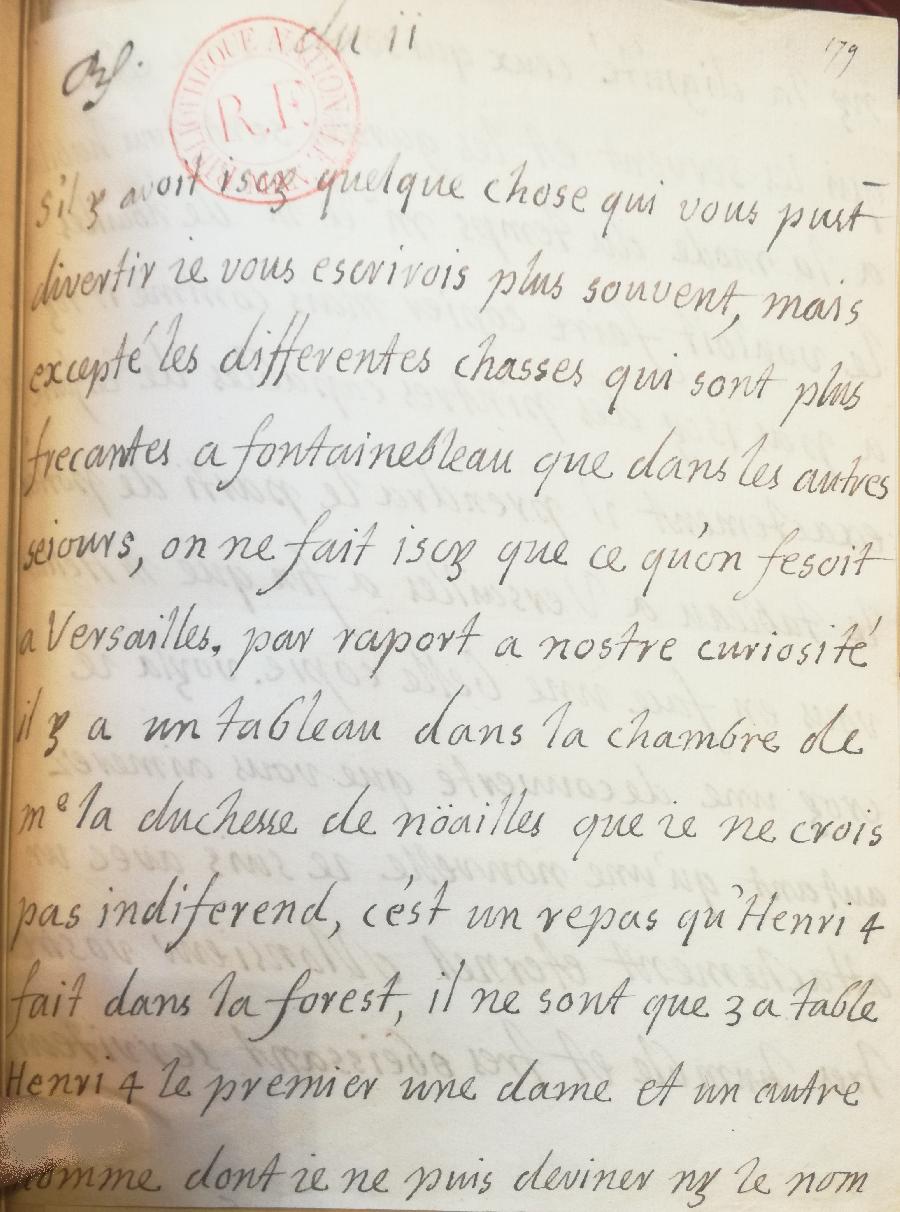 du ii
179
BIBLIOTHEQUE NATIONALE
R.F.
s'il y avoit iscy quelque chose qui vous pust
divertir ie vous escrirois plus souvent, mais
excepté les differentes chasses qui sont plus
frecantes a fontainebleau que dans les autres
seiours, on ne fait iscy que ce qu'on fesoit
a Versailles. par raport a nostre curiosité
il y a un tableau dans la chambre de
me la duchesse de nöailles que ie ne crois
pas indiferend, c'est un repas qu'Henri 4
fait dans la forest, il ne sont que 3 a table
Henri 4 le premier une dame et un autre
homme dont ie ne puis deviner ny le nom